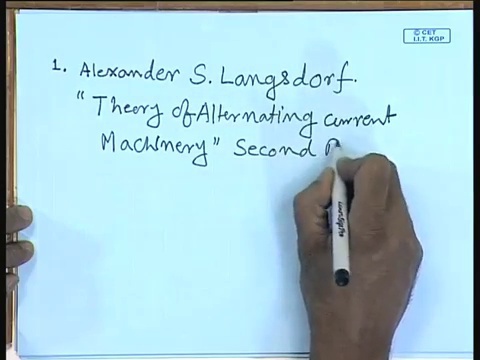 © CET
I.I.T. KGP
1. Alexander S. Langsdorf.
"Theory of Alternating current
Machinery" Second